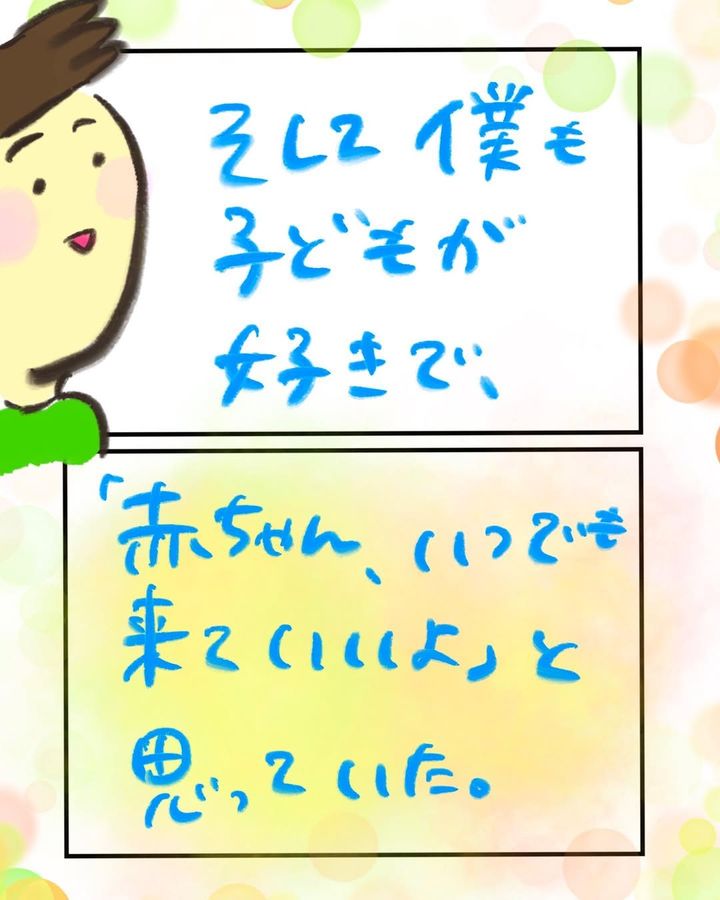 そして僕も
子どもが
好きで、
「赤ちゃん、いつでも
来ていいよ」と
思っていた。